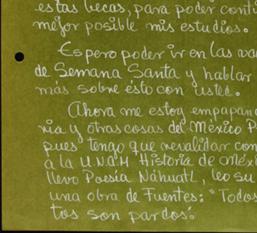 estas becas, para poder conti
mejor posible mis estudios.
Espero poder ir en las va
de Semana Santa y hablar
más sobre esto con usted.
Ahora me estoy empapan
ria y otras cosas del México P
pues tengo que revalidar con
a la UNAM Historia de Méx
llevo Poesía Náhuatl, leo su
una obra de Fuentes: "Todos
tos son pardos".